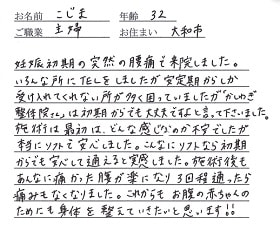 お名前 こじま 年齢 32
ご職業 主婦 お住まい 大和市
妊娠初期の突然の腰痛で来院しました。
いろんな所にTELをしましたが安定期からしか
受け入れてくれない所が多く困っていましたが“かしわぎ
整体院さん”は初期からでも大丈夫ですよと言って下さいました。
施術は最初は、どんな感じなのか不安でしたが
本当にソフトで安心しました。こんなにソフトなら初期
からでも安心して通えると実感しました。施術後も
あんなに痛かった腰が楽になり3回程通ったら
痛みもなくなりました。これからもお腹の赤ちゃんの
ためにも身体を整えていきたいと思います!!